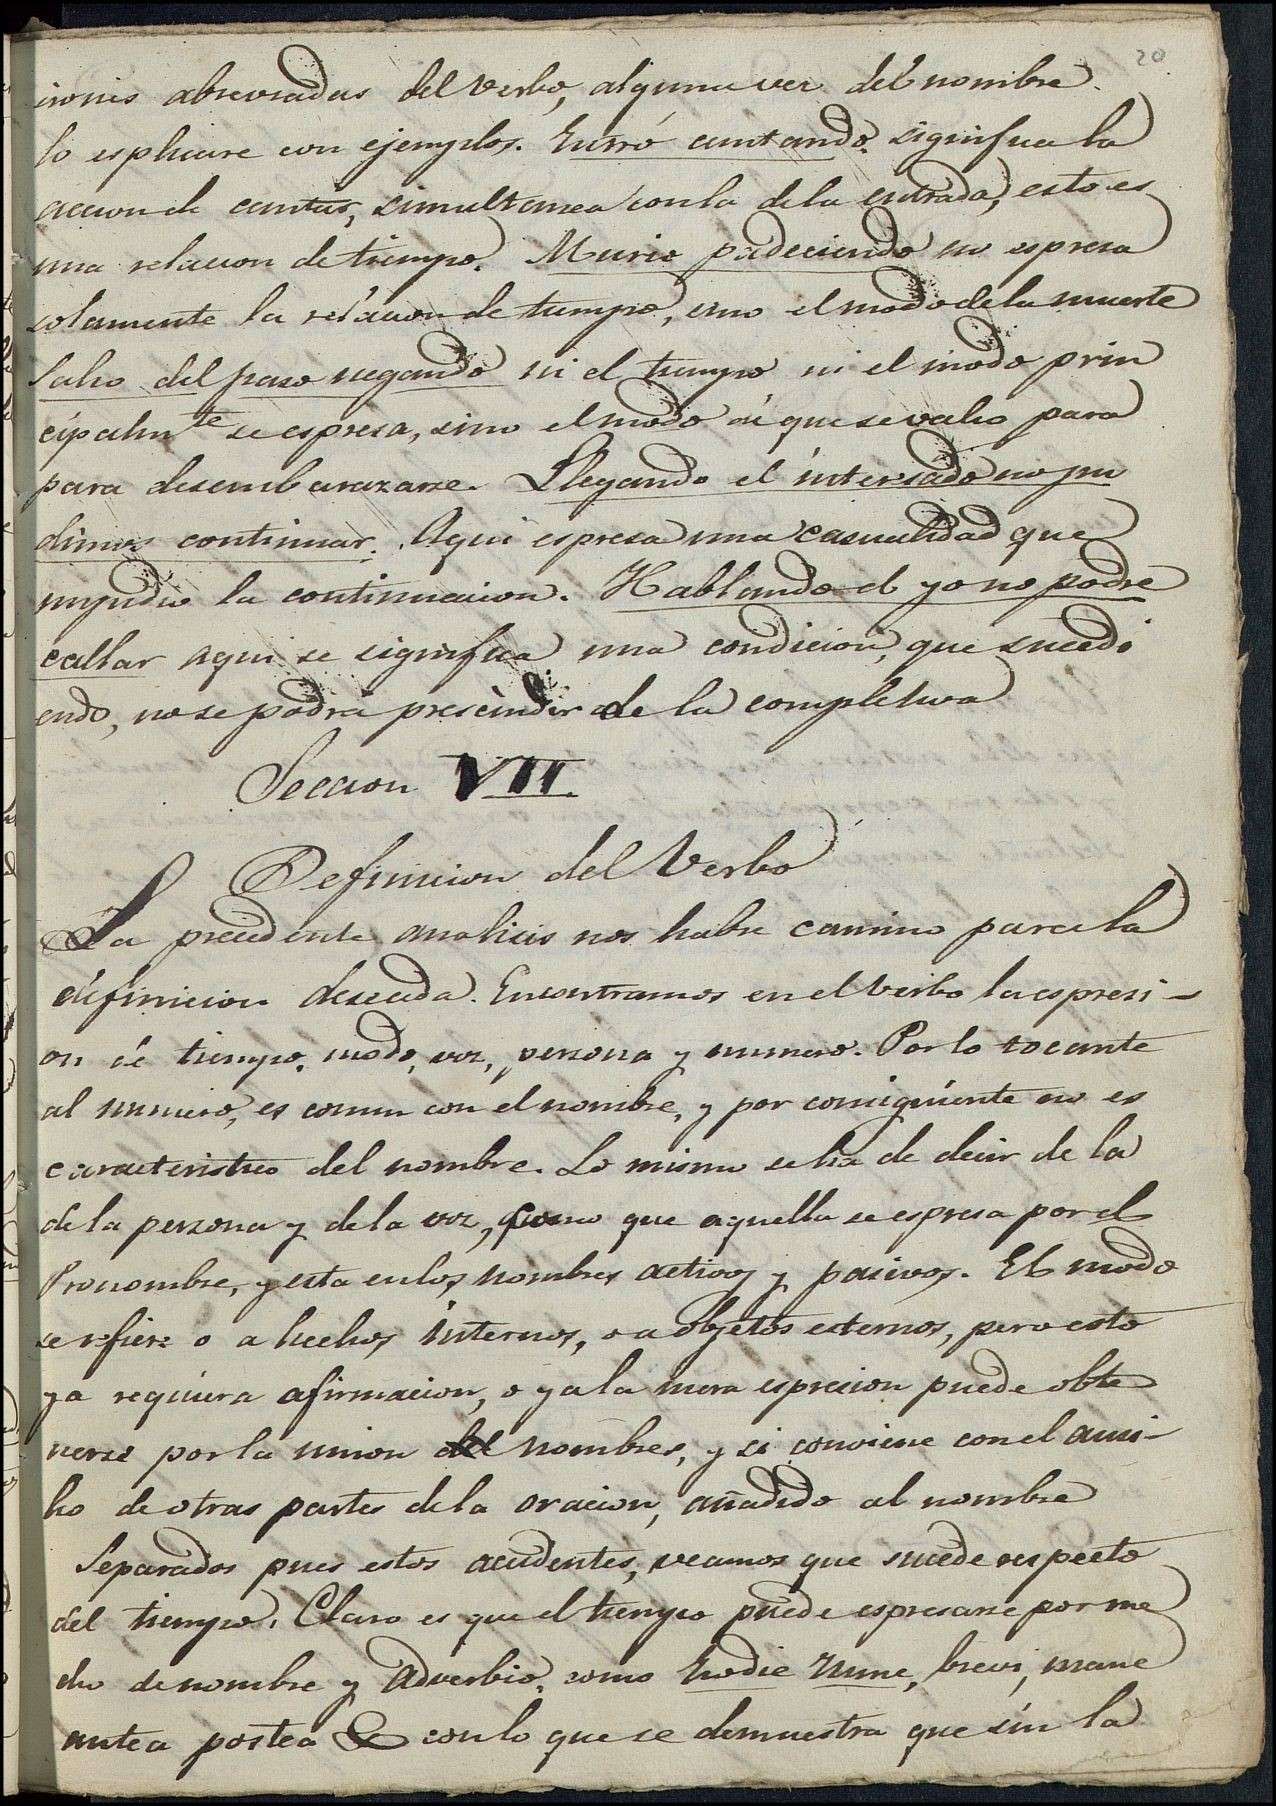 20
iones abreviadas del Verbo, alguna vez del nombre.
lo esplicare con ejemplos. Entró cantando. significa la
accion de cantar, simultanea con la de la entrada, esto es
una relacion de tiempo. Murio padeciendo no espresa
solamente la relacion de tiempo, sino el modo de la muerte
Salio del paso negando ni el tiempo ni el modo prin
cipalmte se espresa, sino el modo de que se valio para
para desembarazarse. Llegando el interesado no pu
dimos continuar. Aqui espresa una casualidad que
impidio la continuacion. Hablando el yo no podre
callar aqui se significa una condicion, que sucedi
endo, no se podrá prescindir de la completiva
Seccion VII.
Definicion del Verbo
La precedente analisis nos habre camino para la
definicion deseada. Encontramos en el Verbo la espresi-
on de tiempo, modo, voz, persona y numero. Por lo tocante
al numero, es comun con el nombre, y por consiguiente no es
caracteristico del nombre. Lo mismo se ha de decir de la
de la persona y de la voz, como que aquella se espresa por el
Pronombre, y esta en los nombres activos y pasivos. El modo
se refiere o a hechos internos, o a objetos externos, pero esto
ya requiera afirmacion, o ya la mera espresion puede obte
nerse por la union del nombres, y si conviene con el ausi-
lio de otras partes de la oracion, añadido al nombre
Separados pues estos accidentes, veamos que sucede respecto
del tiempo. Claro es que el tiempo puede espresarse por me
dio de nombre y Adverbio, como hodie Nunc, brevi, mane
antea postea & con lo que se demuestra que sin la